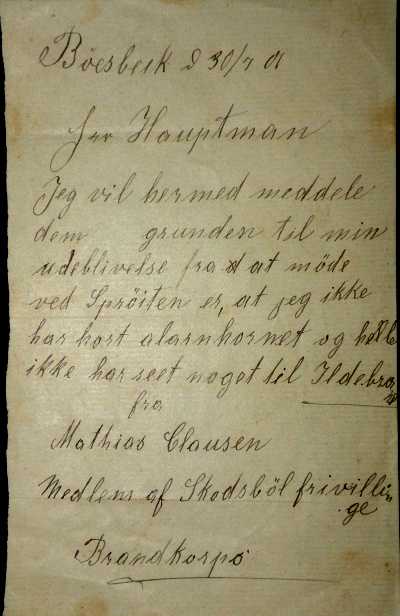 Böesbeck d 30/7 01
Herr Hauptman
Jeg vil hermed meddele
dem grunden til min
udeblivelse fra at möde
ved Spröiten er, at jeg ikke
har hort alarnhornet og heller
ikke har seet noget til Ildebranden
fra
Mathias Clausen
Medlem af Skodsböl frivillinge
Brandkorps